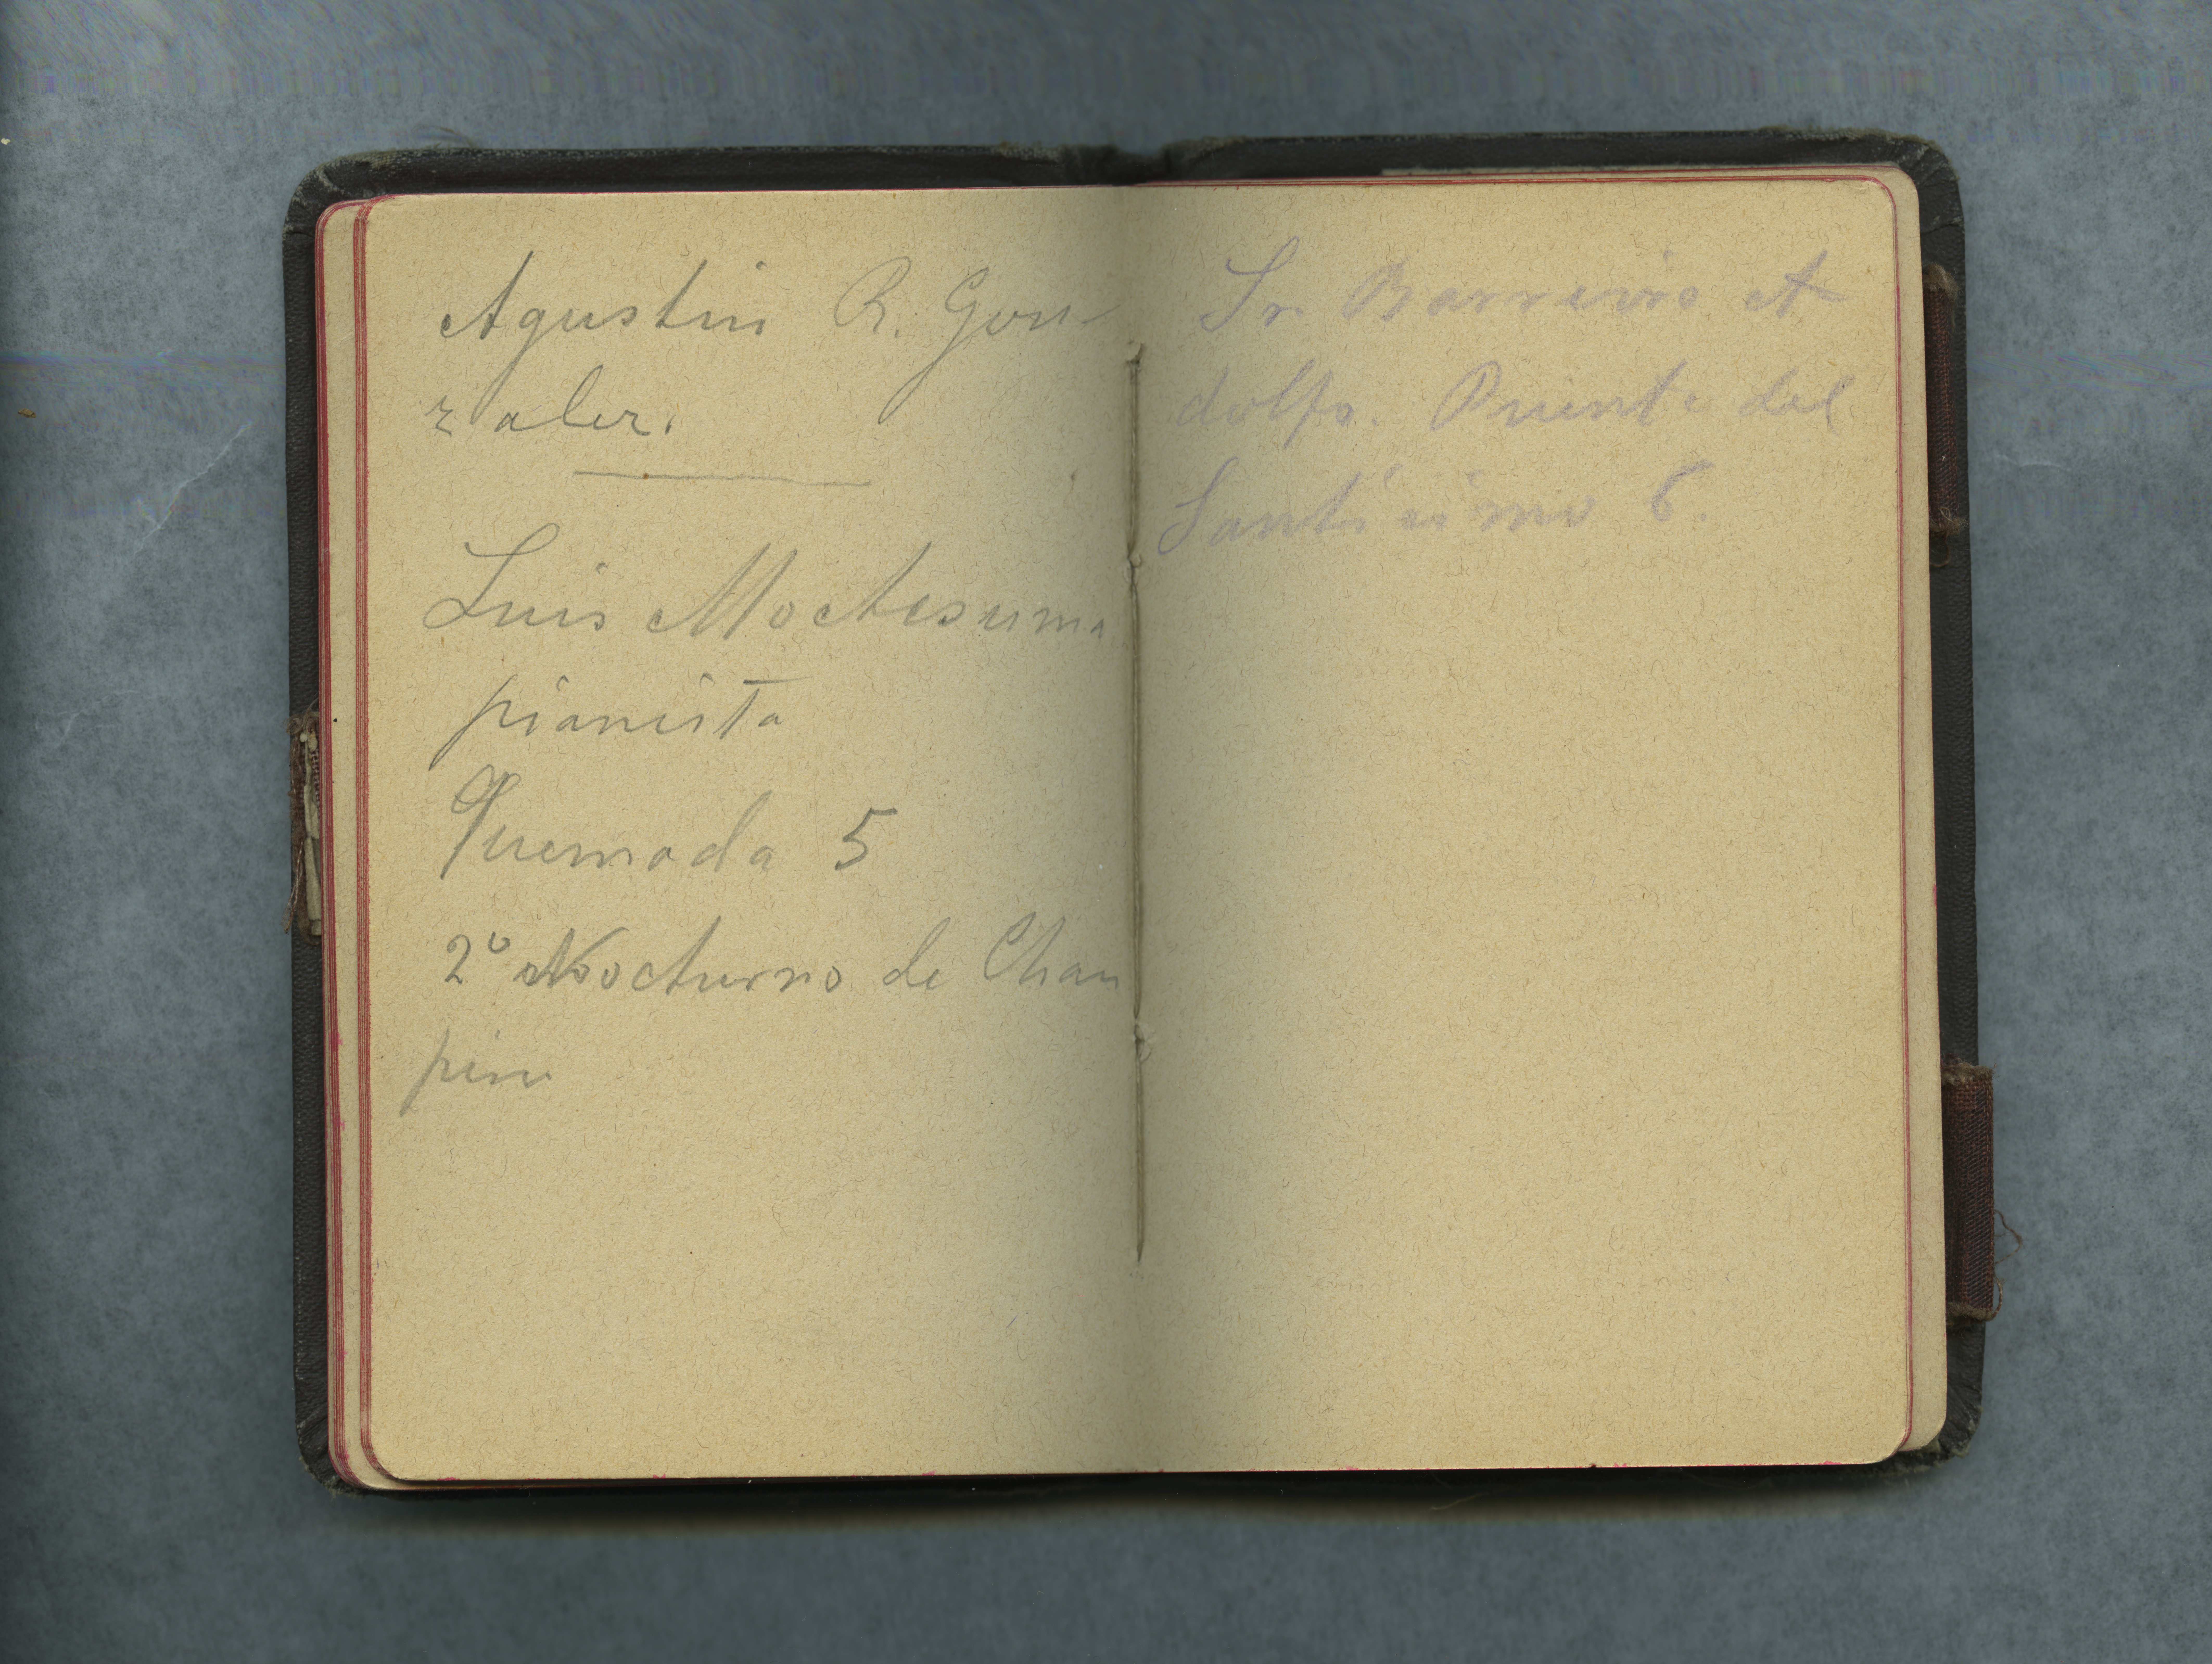 Agustin R. Gon-
zalez.
Luis Moctesuma
pianista
Quemada 5
2º Nocturno de Chau
pin
Sr. Barreiro A
dolfo. Puente del
Santisimo 6.